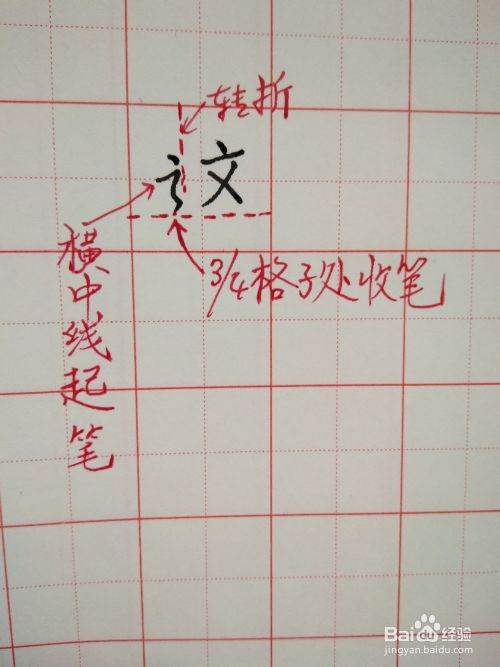 转折
文
3/4格子处收笔
横中线起笔
Baidu经验
jingyan.baidu.com